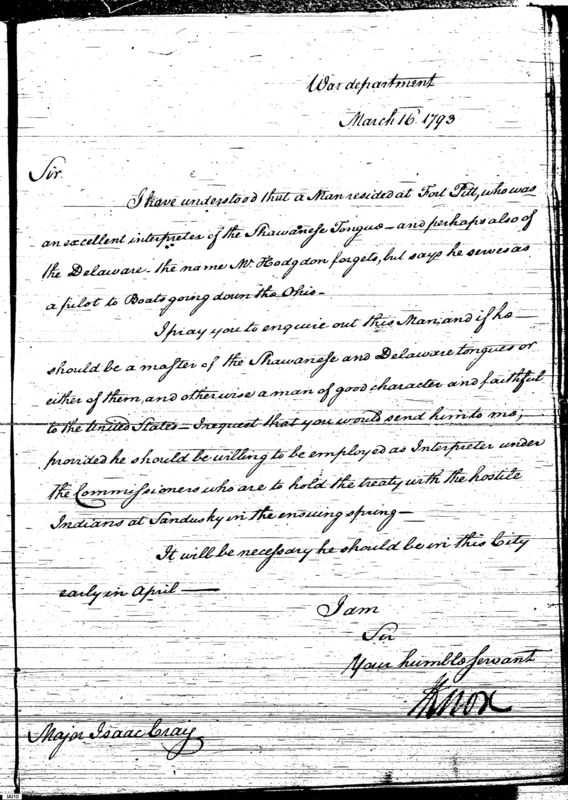 War department
March 16 1793
Sir
I have understood that a Man resided at Fort Pitt, who was
an excellent interpreter of the Shawanese Tongue – and perhaps also of
the Delaware – the name Mr. Hodgdon forgets, but says he serves as
a pilot to Boats going down the Ohio –
I pray you to enquire out this Man, and if he –
should be a master of the Shawanese and Delaware tongues or
either of them, and otherwise a man of good character and faithful
to the United States – I request that you would send him to me,
provided he should be willing to be employed as Interpreter under
the Commissioners who are to hold the treaty with the hostile
Indians at Sandusky in the ensuing spring –
It will be necessary he should be in this City
early in April —
I am
Sir
Your humble servant
HKnox
Major Isaac Craig